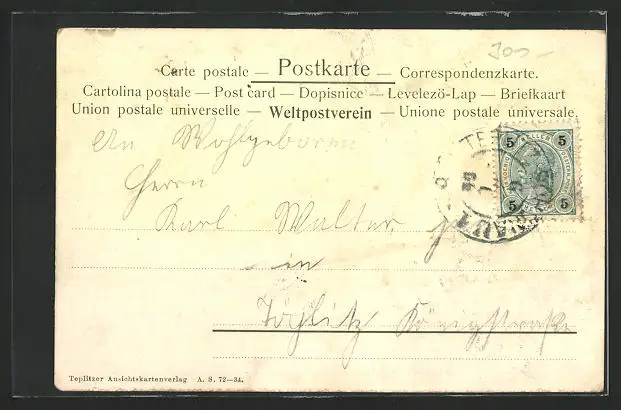 300 -
Carte postale — Postkarte — Correspondenzkarte.
Cartolina postale — Post card — Dopisnice — Levelezö-Lap — Briefkaart
Union postale universelle — Weltpostverein — Unione postale universale.
Wohlgeboren
Herrn
Karl Walter
in
Königstraße
5 HELLER 5
5 5
Teplitzer Ansichtskartenverlag A. S. 72—34.